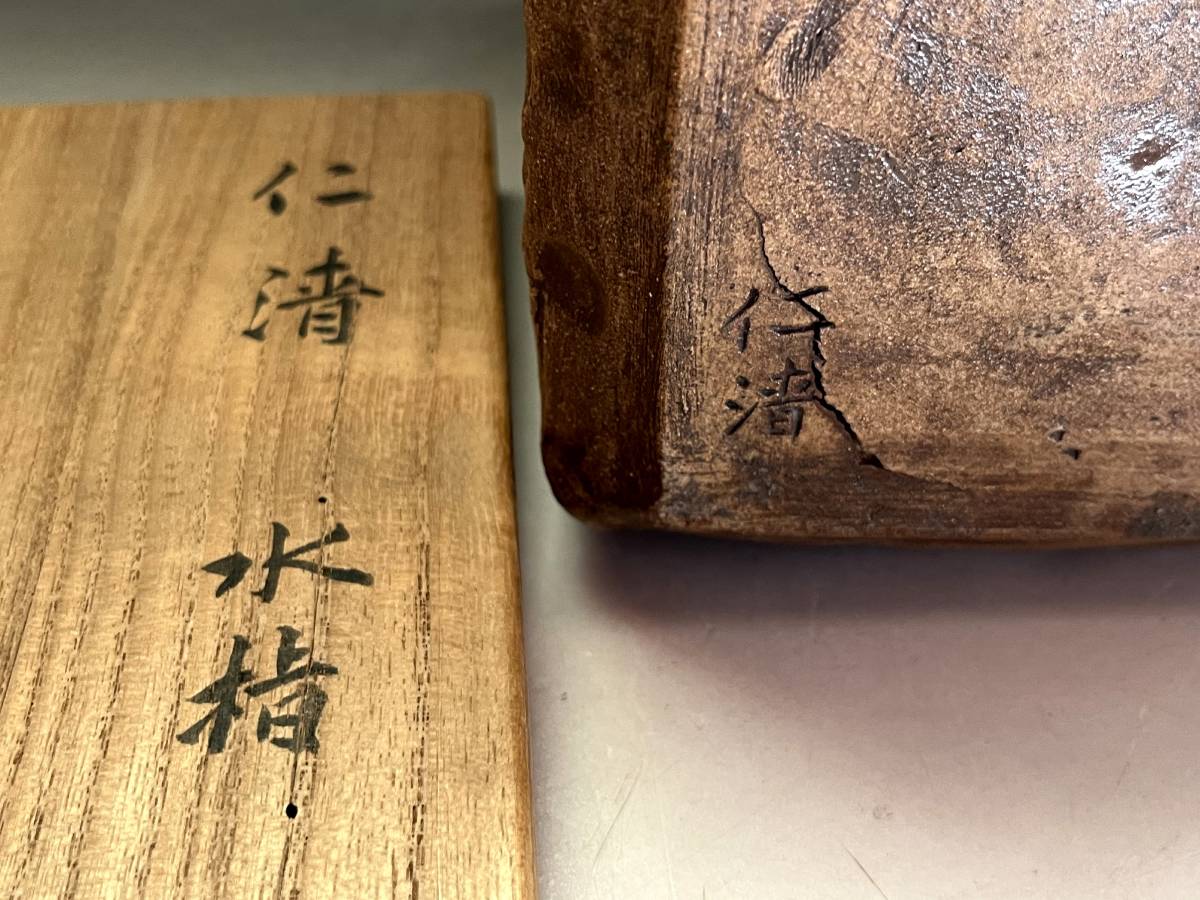 仁清
水指
仁清